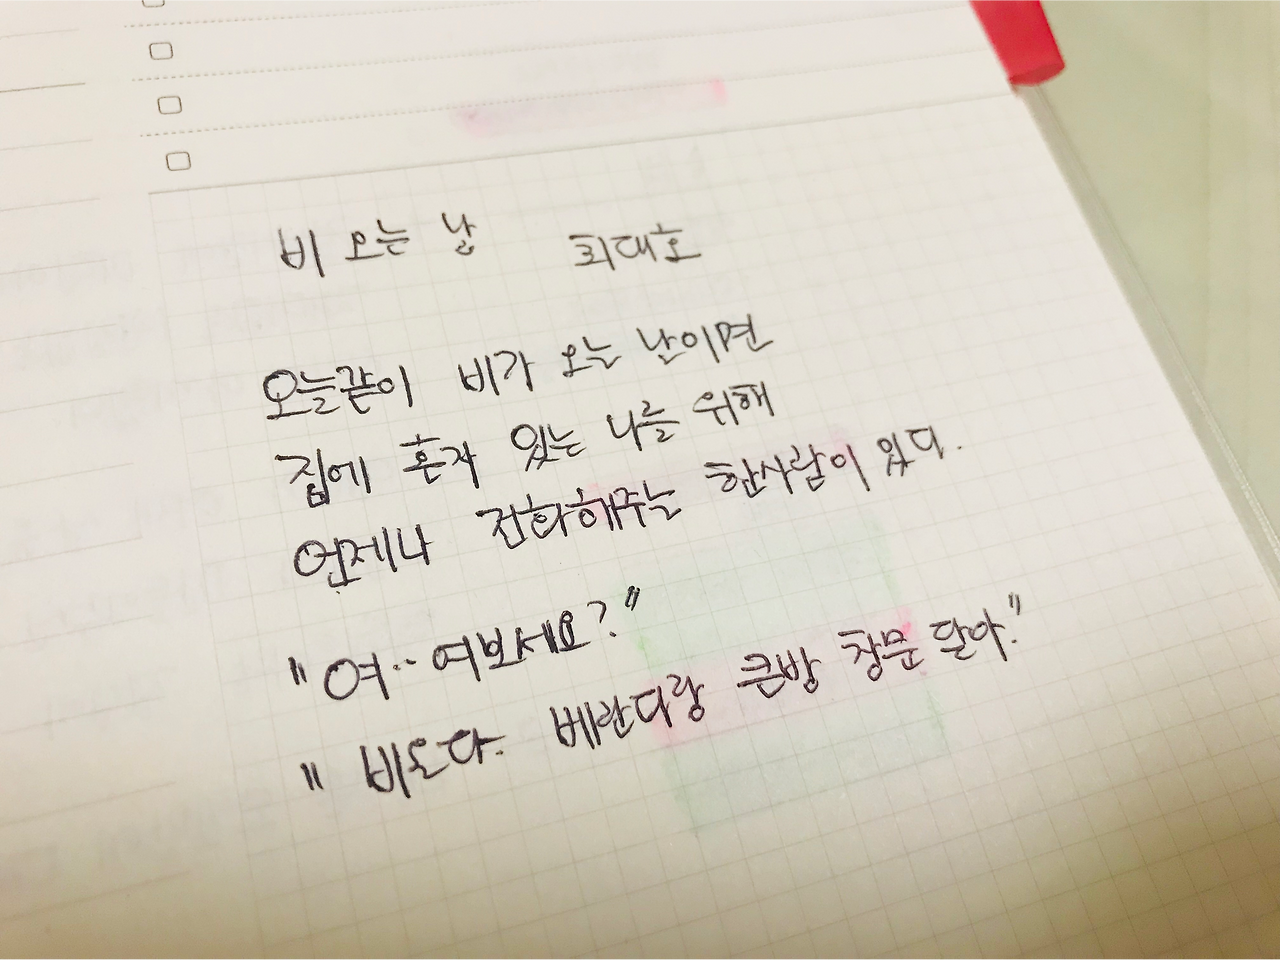 비 오는 날 최대호
오늘같이 비가 오는 날이면
집에 혼자 있는 나를 위해
언제나 전화해주는 한사람이 있다.
"여.. 여보세요?"
" 비온다. 베란다랑 큰방 창문 닫아."